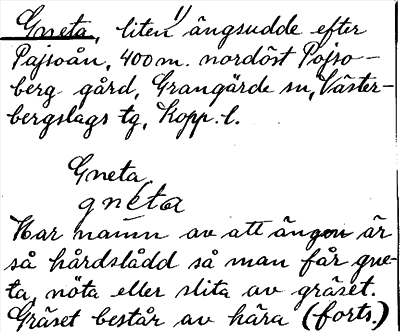 Gneta, liten ängsudde efter
Pajsoån, 400 m. nordöst Pajso-
berg gård, Grangärde sn, Väster-
bergslags tg, Kopp. l.
Gneta
gnéta
Har namn av att ängen är
så hårdslådd så man får gne-
ta, nöta eller slita av gräset.
Gräset består av hära (forts.)